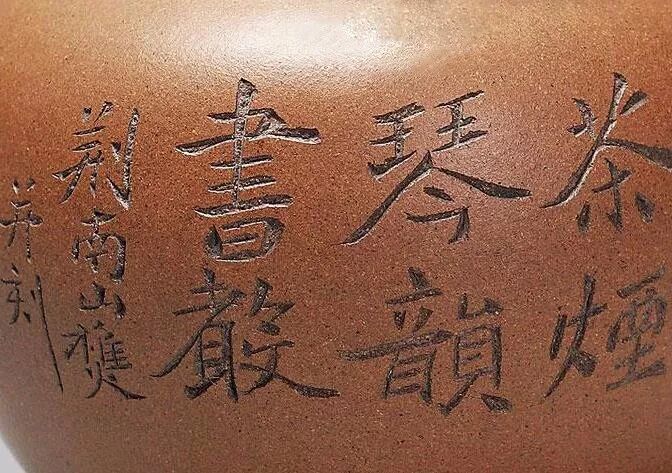 茶煙
琴韻
書聲
荆南山樵
并刻